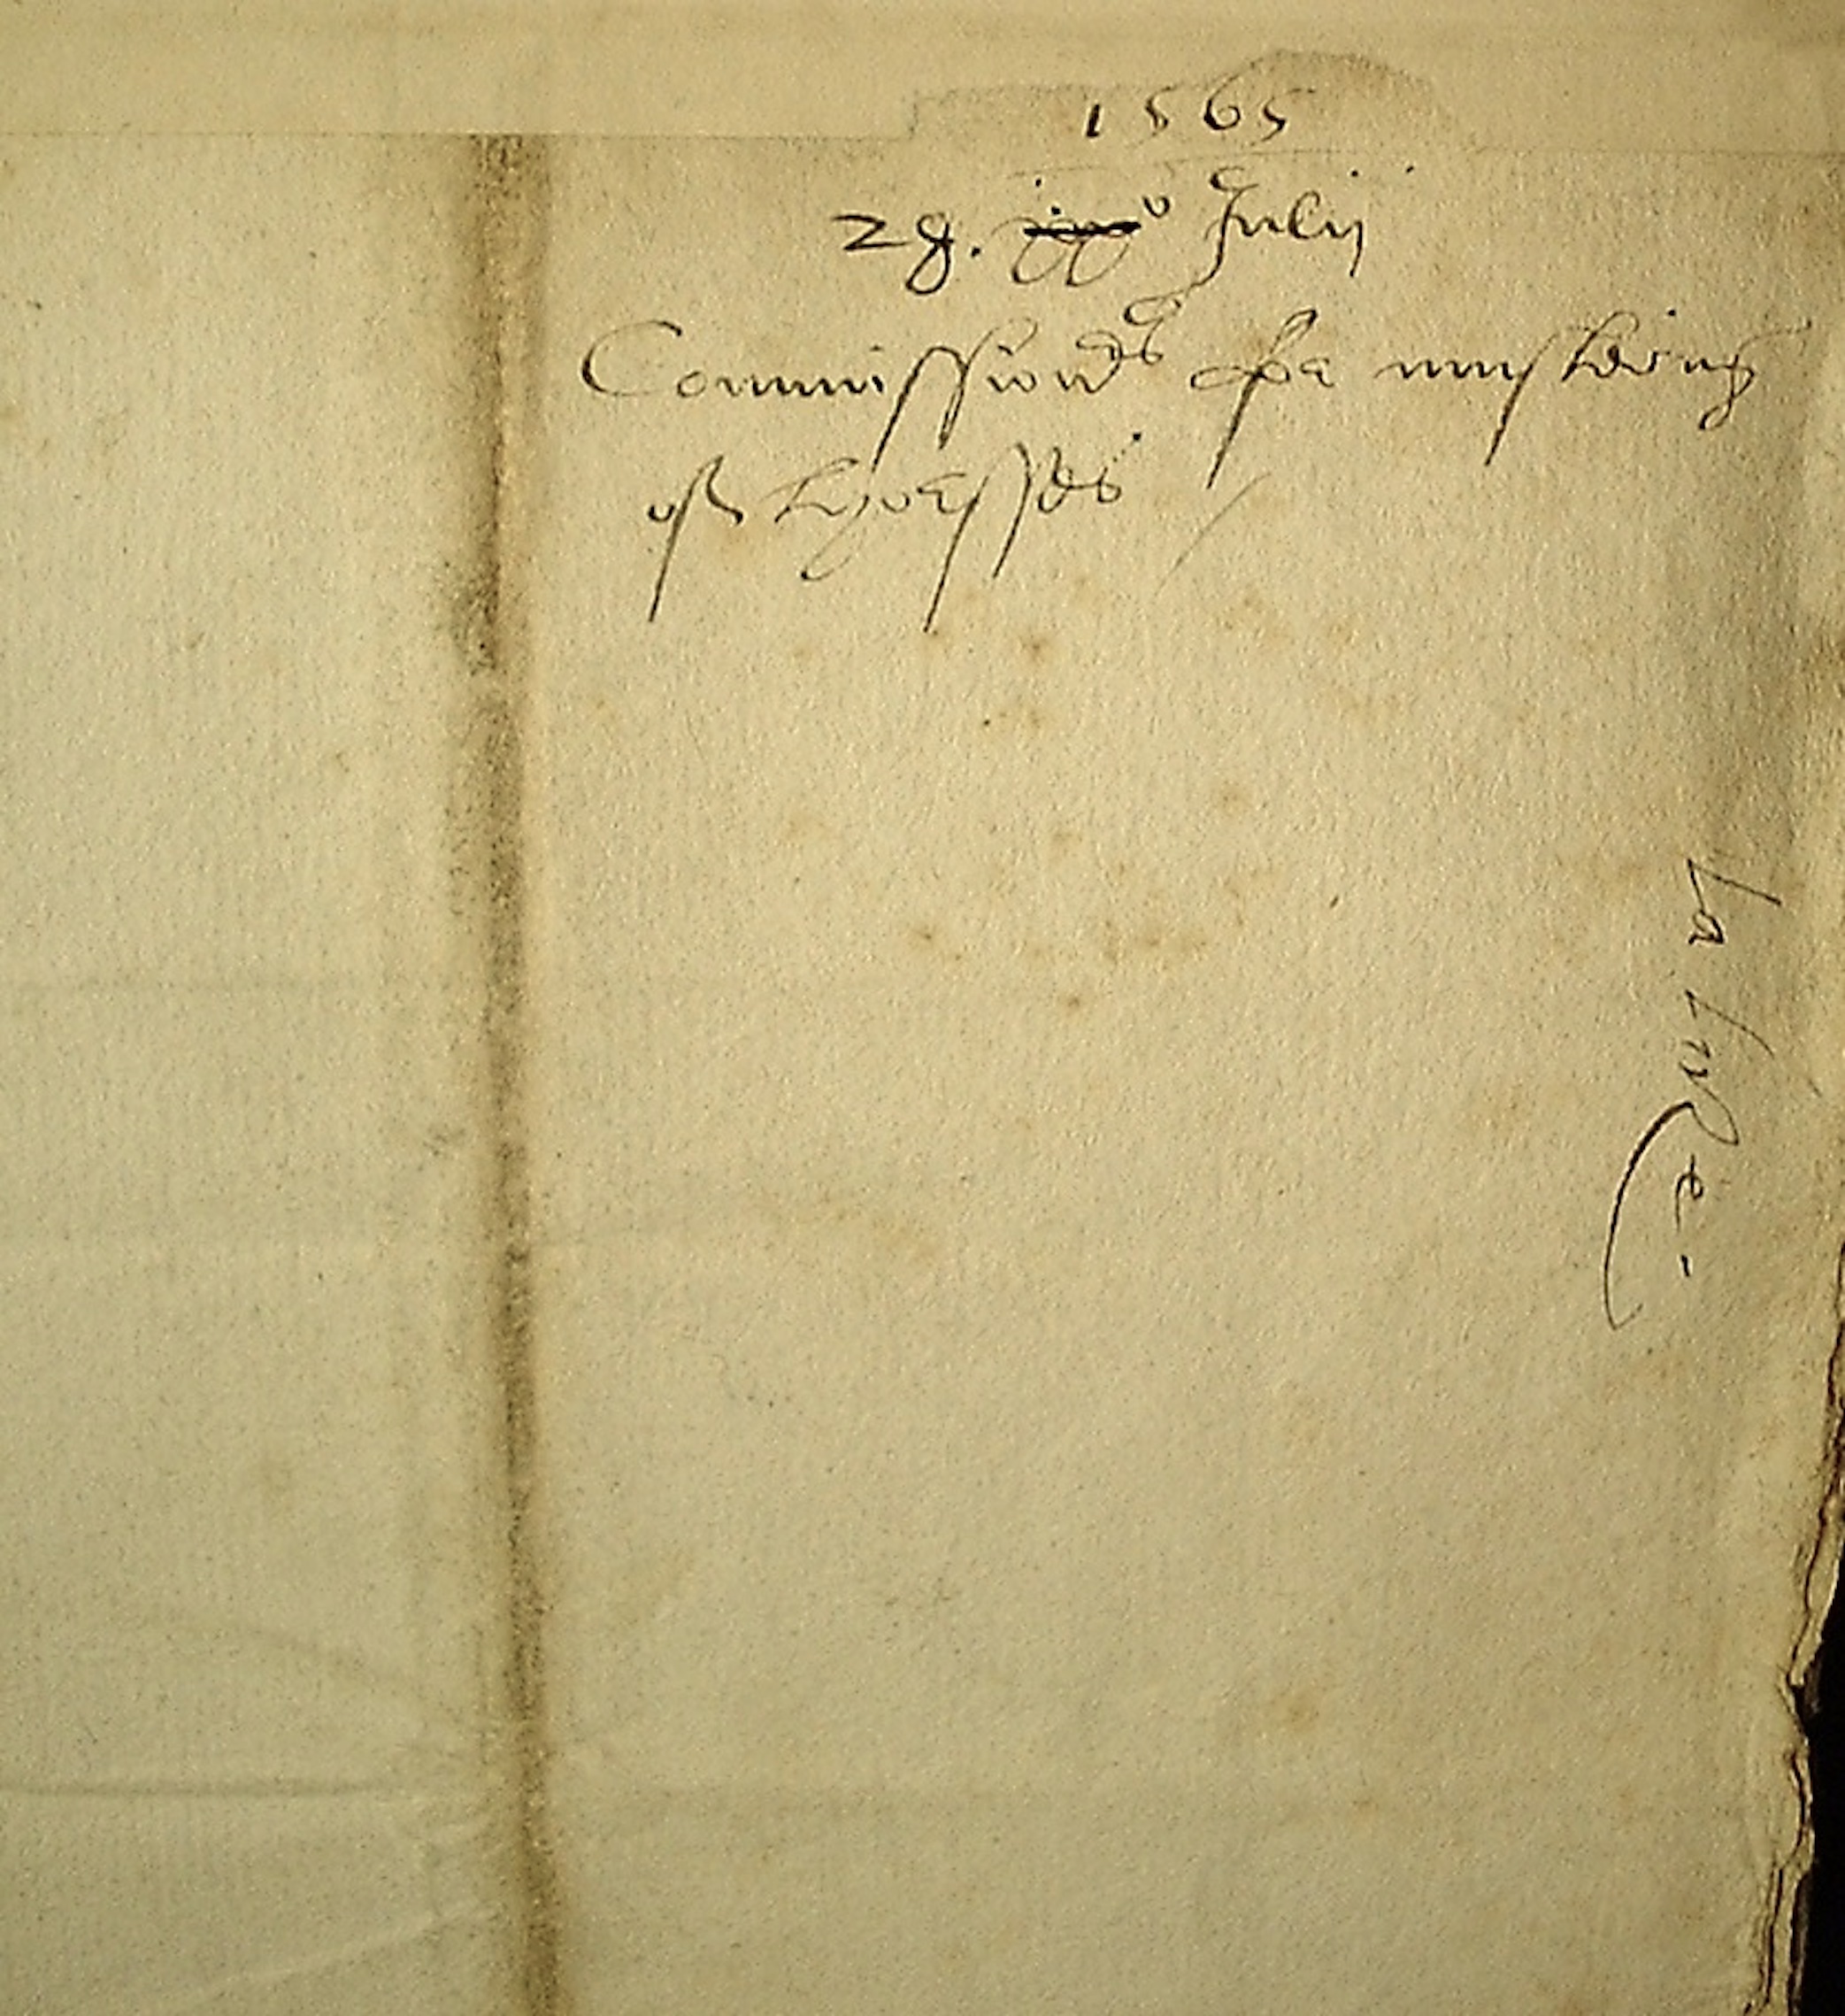 1565
28. xxo Julii
Commissions for mustering
of horsses